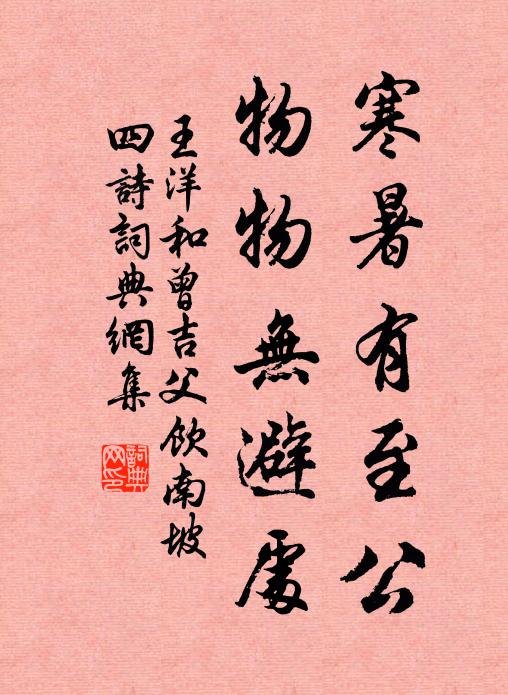 寒暑有至公
物物無避處
王洋和曾吉父飲南坡
四詩詞典網集
詞典
网印